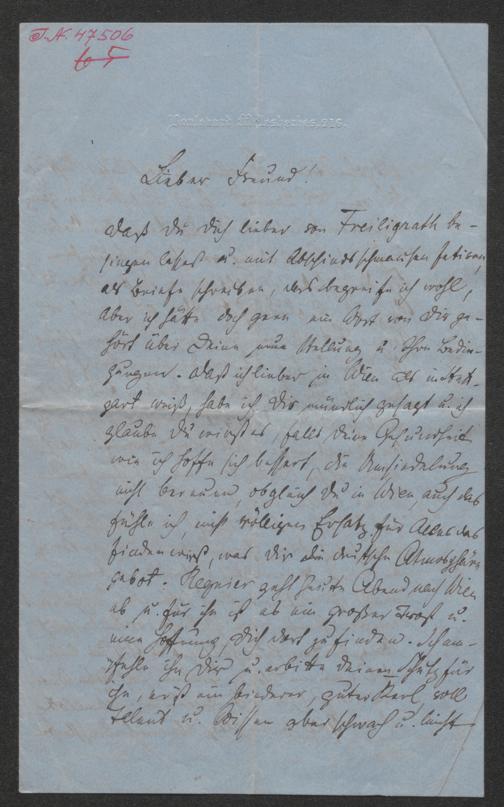 J.N. 47506
65
Boulevard Malesherbes
Lieber Freund!
Daß Du Dich lieber von Freiligrath be-
singen lasest u. mit Abschiedsschmausen fetiren,
als Briefe schreiben, das begreife ich wohl,
aber ich hätte doch gern ein Wort von Dir ge-
hört über Deine neue Stellung u. ihre Bedin-
gungen. Daß ich lieber in Wien als in Stutt-
gart weiß, habe ich Dir mündlich gesagt u. ich
glaube Du wirst es, falls Deine Gesundheit
wie ich hoffe sich bessert, die Ansiedelung
nicht bereuen, obgleich Du in Wien, auch das
fühle ich, nicht völligen Ersatz für Alles das
finden wirst, was Dir die deutsche Atmosphäre
gebot. Regnier geht heute Abend nach Wien
ab u. für ihn ist es ein großer Trost u.
eine Hoffnung, Dich dort zu finden. Ich em-
pfehle ihn Dir u. erbitte Deinen Schutz für
ihn, er ist ein guter Kerl, voll
Talent u. Wissen aber schwach u. leicht